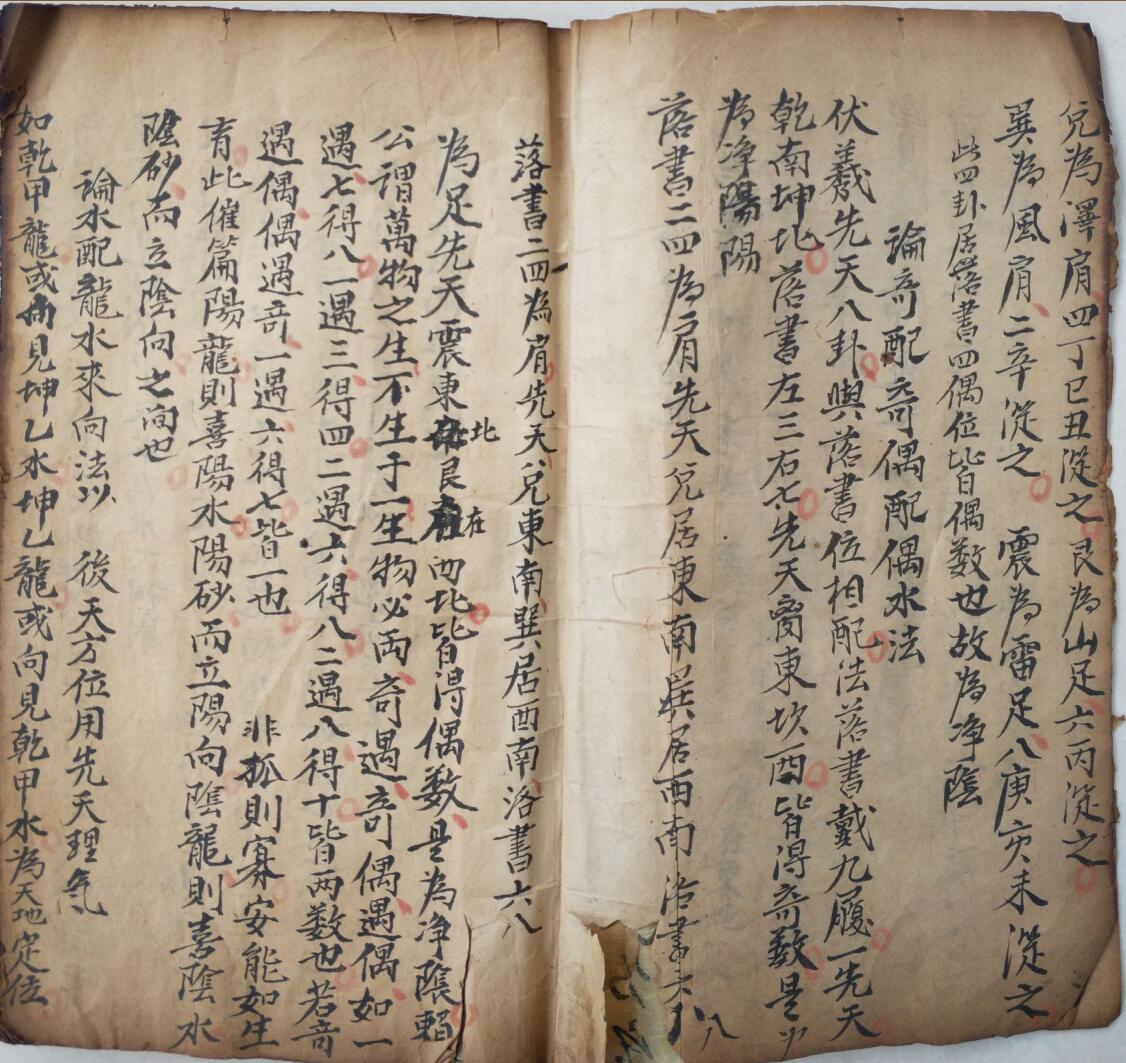 兌為澤肩四丁巳丑從之艮為山足六丙從之
巽為風肩二辛從之 震為雷足八庚亥未從之
此四卦居落書四偶位皆偶数也故為净陰
論奇配奇偶配偶水法
伏羲先天八卦與落書位相配法落書戴九履一先天
乾南坤北落書左三右七先天离東坎西皆得奇数是
為净陽陽
落書二四為肩先天兌居東南巽居西南洛書六八
落書二四為肩先天兌東南巽居西南洛書六八
為足先天震東北艮在西北皆得偶数是為净陰賴
公謂萬物之生不生于一生物必両奇遇奇偶遇偶如一
遇七得八一遇三得四二遇六得八二遇八得十皆両数也若奇
遇偶偶遇奇一遇六得七皆一也 非孤則寡安能如生
育此催篇陽龍則喜陽水陽砂而立陽向陰龍則喜陰水
陰砂而立陰向之向也
論水配龍水來向法以 後天方位用先天理氣
如乾甲龍或向見坤乙水坤乙龍或向見乾甲水為天地定位